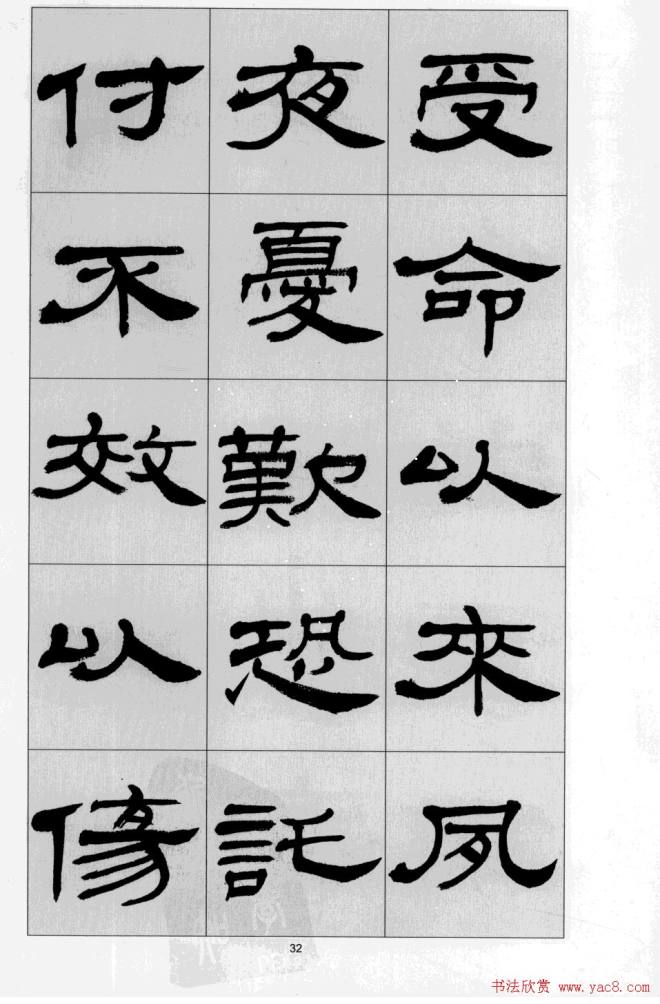 受命以來夙
夜憂歎恐託
付不效以傷
32
书法欣赏 www.yac8.com